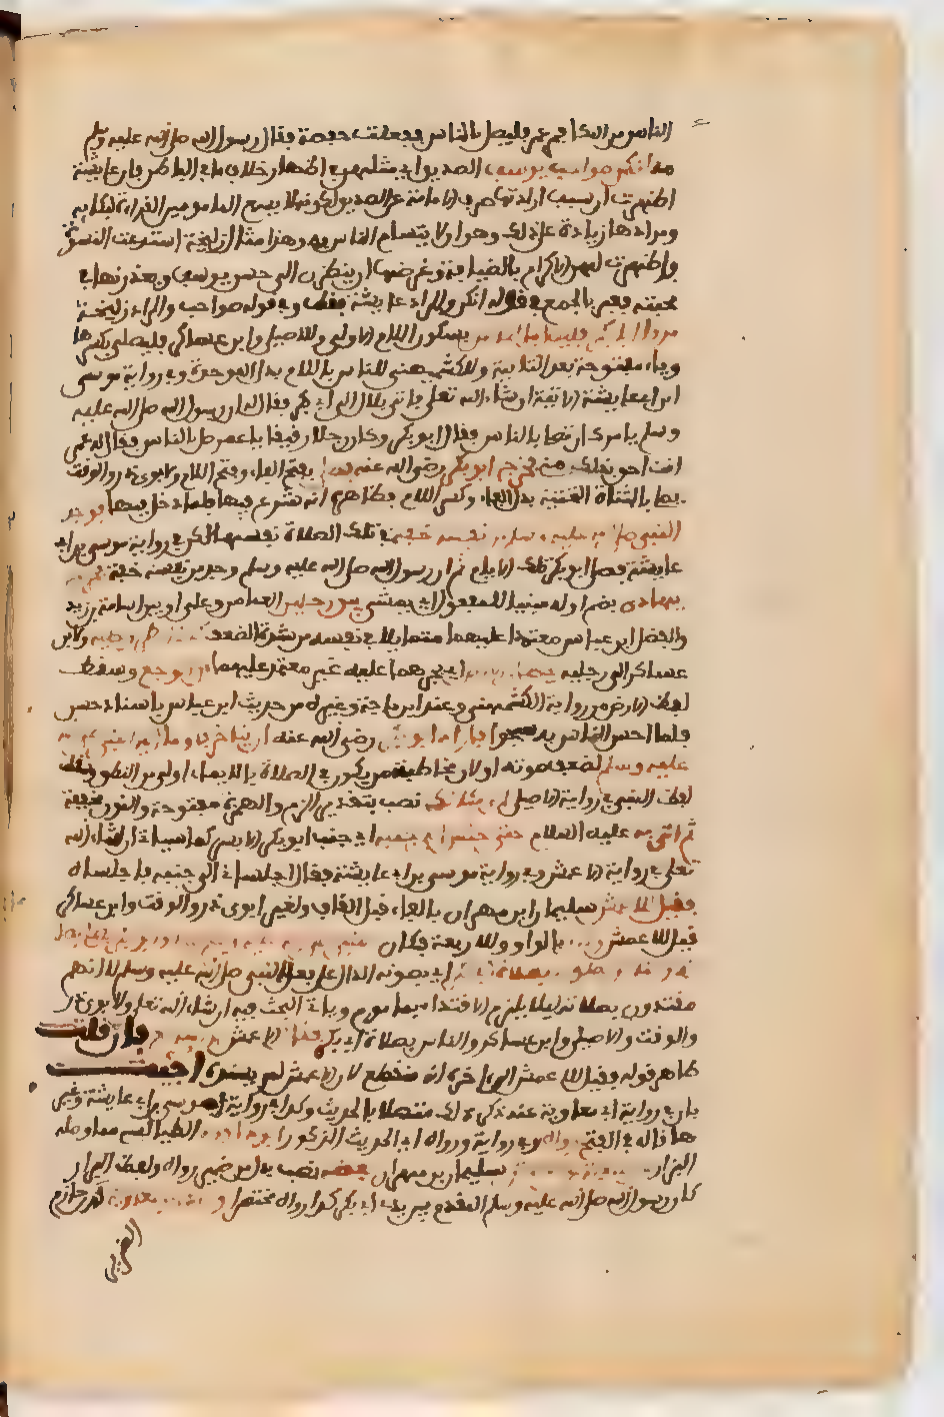 الناس من البكاء فمر عمر فليصل بالناس ففعلت حفصة فقال رسول الله صلى الله عليه وسلم
صواحب يوسف الصديق اي مثلهن في اظهار خلاف ما في الباطن فان عايشة
اظهرت ان سبب ارادتها صرف الامامة عن الصديق لكونه لا يسمع المامومين القراءة لبكايه
ومرادها زيادة على ذلك وهو ان لا يتشاءم الناس به وهذا مثل زليخة استدعت النسوة
واظهرت لهن الاكرام بالضيافة وغرضها ان ينظرن الى حسن يوسف ويعذرنها في
محبته فعبر بالجمع في قوله انكن والمراد عايشة فقط وفي قوله صواحب والمراد زليخة
بسكون اللام الاولى وللاصيلي وابن عساكر فليصلي بكسرها
وياء مفتوحة بعد الثانية وللكشميهني للناس باللام بدل الموحدة وفي رواية موسى
ابن ابي عايشة الاتية ان شاء الله تعلى فاتى بلال الى ابي بكر فقال له ان رسول الله صلى الله عليه
وسلم يامرك ان تصلي بالناس فقال ابو بكر وكان رجلا رقيقا يا عمر صل بالناس فقال له عمر
انت احق بذلك مني فخرج ابو بكر رضي الله عنه بفتح الفاء وفتح اللام ولابوي ذر والوقت
يصلي بالمثناة التحتية بدل الفاء وكسر اللام وظاهره انه شرع فيها فلما دخل فيها فوجد
النبي صلى الله عليه وسلم من نفسه خفة في تلك الصلاة نفسها لكن في رواية موسى بن ابي
عايشة فصلى ابو بكر تلك الايام ثم ان رسول الله صلى الله عليه وسلم وجد من نفسه خفة فخرج
يهادى بضم اوله مبنيا للمفعول اي يمشي بين رجلين العباس وعلي او بين اسامة بن زيد
والفضل ابن عباس معتمدا عليهما متمايلا في نفسه من شدة الضعف ولابن
عساكر الى رجليه اي يجرهما عليها غير معتمد عليهما من الوجع وسقط
لفظ الارض من رواية الكشميهني وعند ابن ماجة وغيره من حديث ابن عباس باسناد حسن
فلما احس الناس به سبحوا فاراد ابو بكر رضي الله عنه ان يتاخر فاوما اليه النبي صلى الله
عليه وسلم لضعف صوته او لان مخاطبة من يكون في الصلاة بالايماء اولى من النطق وسقط
لفظ النبي في رواية الاصيلي ان مكانك نصب بتقدير الزم والهمزة مفتوحة والنون مخففة
ثم اتي به عليه السلام حتى جلس الى جنبه اي جنب ابي بكر الايسر كما سياتي ان شاء الله
تعلى في رواية الاعمش وفي رواية موسى بن ابي عايشة فقال اجلساني الى جنبه فاجلساه
فقيل للاعمش سليمان ابن مهران بالفاء قبل القاف ولغير ابوي ذر والوقت وابن عساكر
قيل للاعمش بالواو وللاربعة فكان
اي بصوته الدال على فعل النبي صلى الله عليه وسلم لا انهم
مقتدون بصلاته ليلا يلزم الاقتداء بماموم وياتي البحث فيه ان شاء الله تعلى ولابوي ذر
والوقت والاصيلي وابن عساكر والناس بصلاة ابي بكر فقال الاعمش فان قلت
ظاهر قوله فقيل للاعمش الى اخره انه منقطع لان الاعمش لم يسنده اجيب
بان في رواية ابي معاوية عنه ذكر ذلك متصلا بالحديث وكذا في رواية موسى بن ابي عايشة وغيرها
قاله في الفتح وفي رواية ورواه اي الحديث المذكور ابو داود الطيالسي مما وصله
البزار سليمان بن مهران بعضه نصب بدل من ضمير رواه ولفظ البزار
كان رسول الله صلى الله عليه وسلم المقدم بين يدي ابي بكر كذا رواه مختصرا خازم